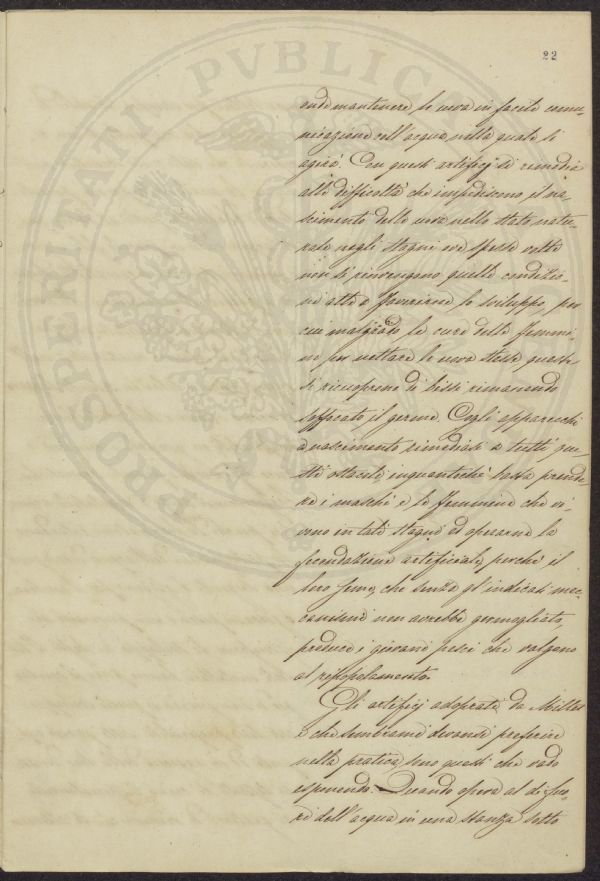 22
onde mantenere le uova in facile comu-
nicazione coll'acqua nella quale si
agirà. Con questi artificj si rimedia
alle difficoltà che impediscono il na-
scimento delle uova nello stato natu-
rale negli stagni ove spesse volte
non si rinvengono quelle condizio-
ni atte a favorirne lo sviluppo, per
cui malgrado le cure delle femmi-
ne per nettare le uova stesse, queste
si ricuoprono di bissi rimanendo
soffocato il germe. Cogli apparecchi
a nascimento rimediasi a tutti que-
sti ostacoli inquantochè basta prende-
re i maschi e le femmine che vi-
vono in tali stagni ed operarne la
fecondazione artificiale, perchè il
loro seme, che senza gl'indicati mec-
canismi non avrebbe germogliato,
produce i giovani pesci che valgano
al ripopolamento.
Gli artificj adoprati da Millet
e che sembrami doversi preferire
nella pratica, sono questi che vado
esponendo. Quando opera al di fuo-
ri dell'acqua in una stanza sotto
PROSPERITATI PVBLICA